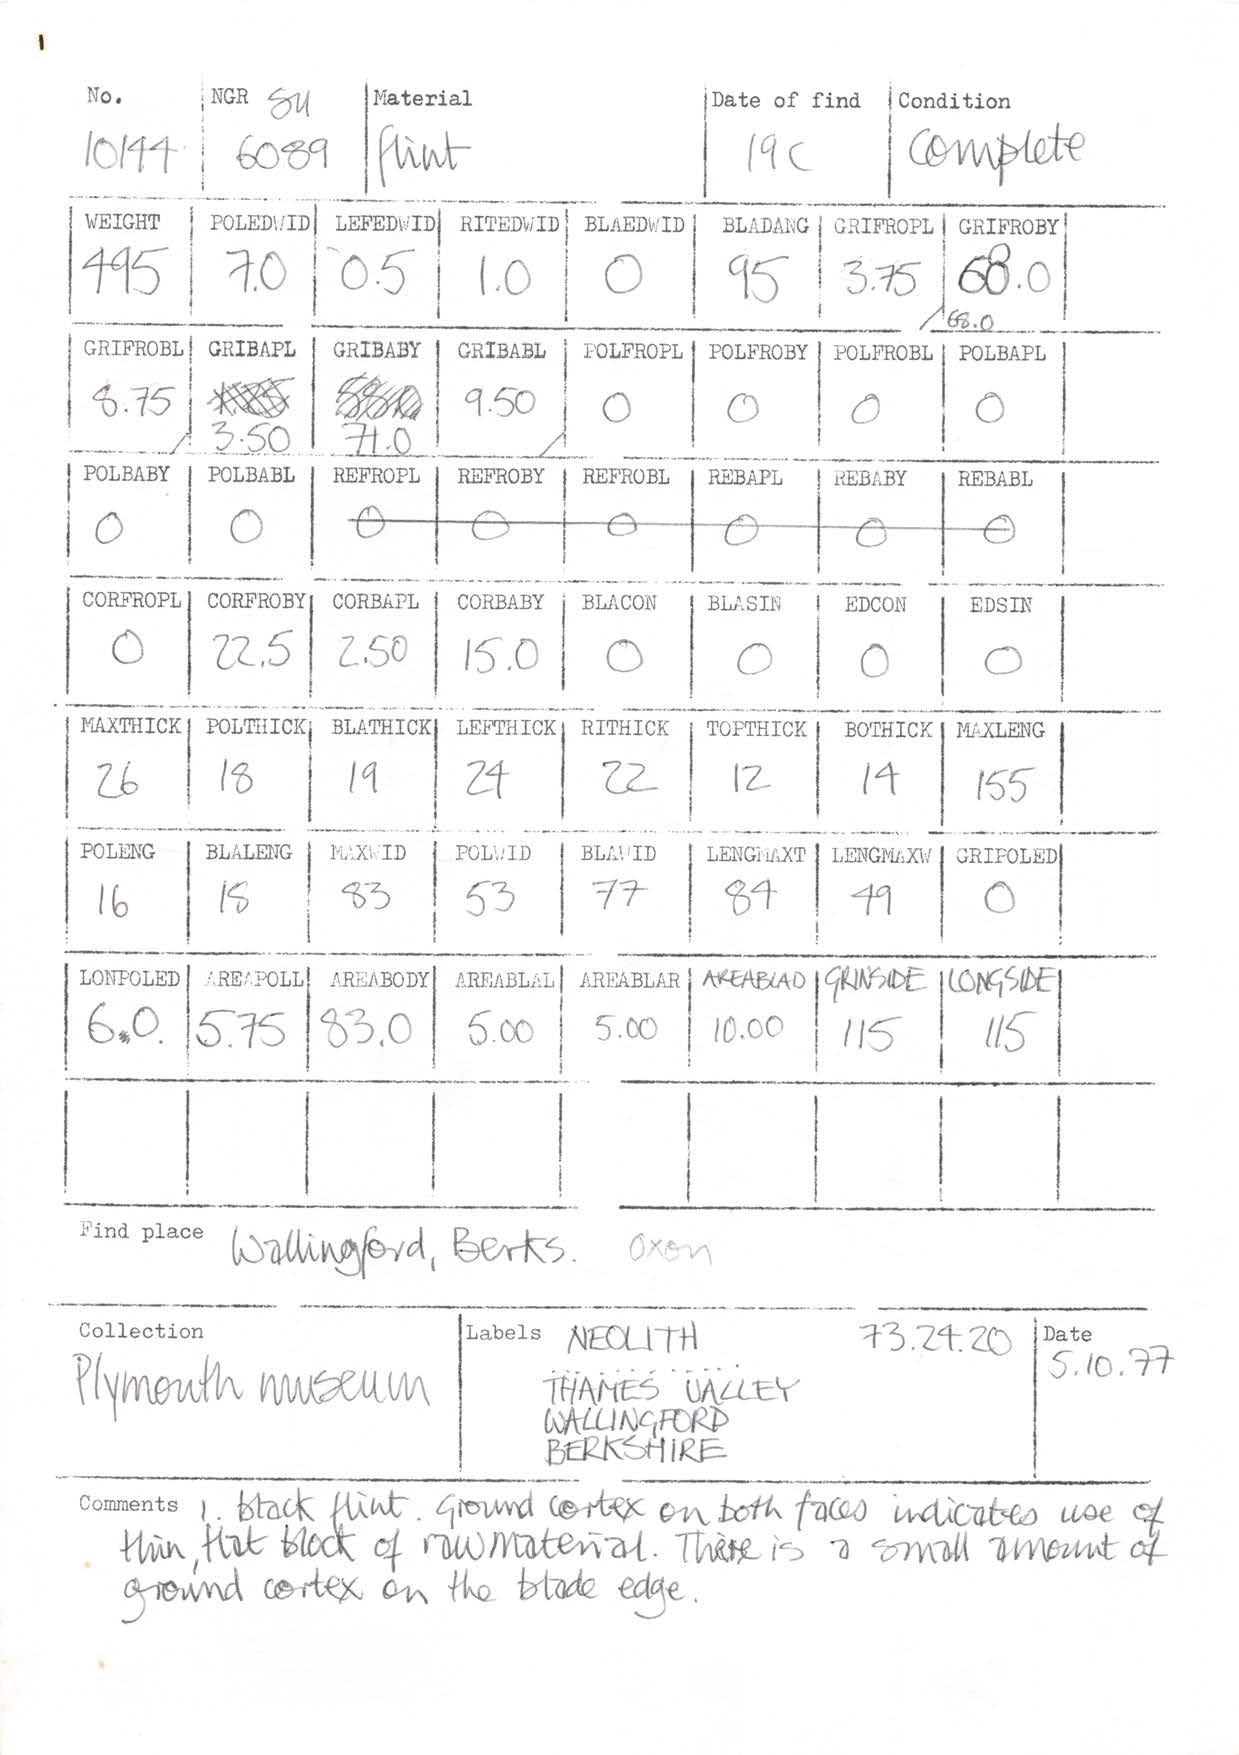 1
No. NGR SU Material Date of find Condition
10144 6089 flint 19C complete
WEIGHT POLEDWID LEFEDWID RITEDWID BLAEDWID BLADANG GRIFROPL GRIFROBY
495 7.0 0.5 1.0 0 95 3.75 68.0
68.0
GRIFROBL GRIBAPL GRIBABY GRIBABL POLFROPL POLFROBY POLFROBL POLBAPL
8.75 9.50 0 0 0 0
3.50 71.0
POLBABY POLBABL REFROPL REFROBY REFROBL REBAPL REBABY REBABL
0 0 0 0 0 0 0 0
CORFROPL CORFROBY CORBAPL CORBABY BLACON BLASIN EDCON EDSIN
0 22.5 2.50 15.0 0 0 0 0
MAXTHICK POLTHICK BLATHICK LEFTHICK RITHICK TOPTHICK BOTHICK MAXLENG
26 18 19 24 22 12 14 155
POLENG BLALENG MAXWID POLWID BLAWID LENGMAXT LENGMAXW GRIPOLED
16 18 83 53 77 84 49 0
LONPOLED AREAPOLL AREABODY AREABLAL AREABLAR AREABLAD GRINSIDE LONGSIDE
6.0. 5.75 83.0 5.00 5.00 10.00 115 115
Find place Wallingford, Berks. Oxon
Collection Labels NEOLITH 73.24.20 Date
Plymouth museum THAMES VALLEY 5.10.77
WALLINGFORD
BERKSHIRE
Comments 1. black flint. Ground cortex on both faces indicates use of
thin, flat block of raw material. There is a small amount of
ground cortex on the blade edge.